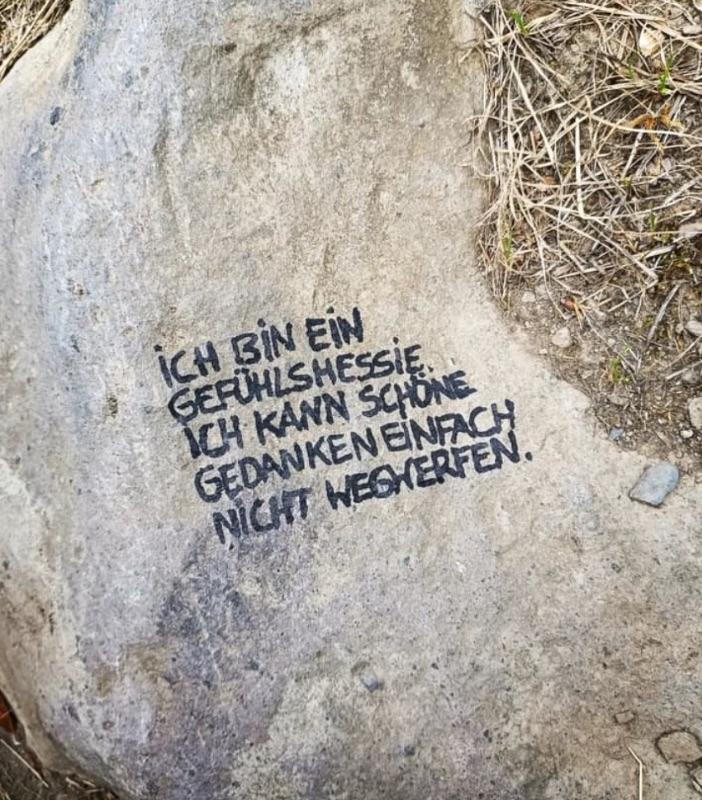 ICH BIN EIN
GEFÜHLSMESSIE.
ICH KANN SCHÖNE
GEDANKEN EINFACH
NICHT WEGWERFEN.